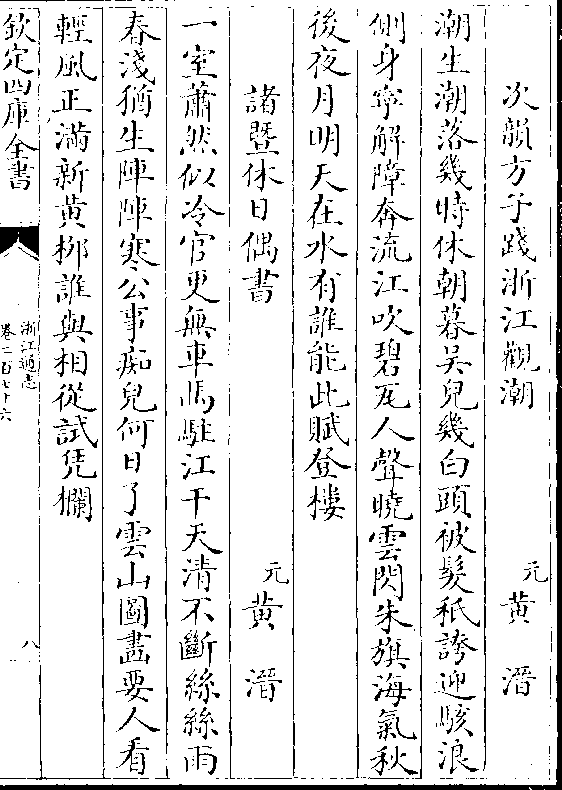 次韻方子踐浙江觀潮 元 黃溍
潮生潮落幾時休朝暮吳兒幾白頭被髮秖誇迎駭浪
側身寜解障奔流江吹碧瓦人聲曉雲閃朱旗海氣秋
後夜月明天在水有誰能此賦登樓
諸暨休日偶書 元 黃溍
一室蕭然似冷官更無車馬駐江干天清不斷絲絲雨
春淺猶生陣陣寒公事痴兒何日了雲山圖畵要人看
輕風正滿新黄栁誰與相從試凭欄
欽定四庫全書
浙江通志
卷二百七十六
八